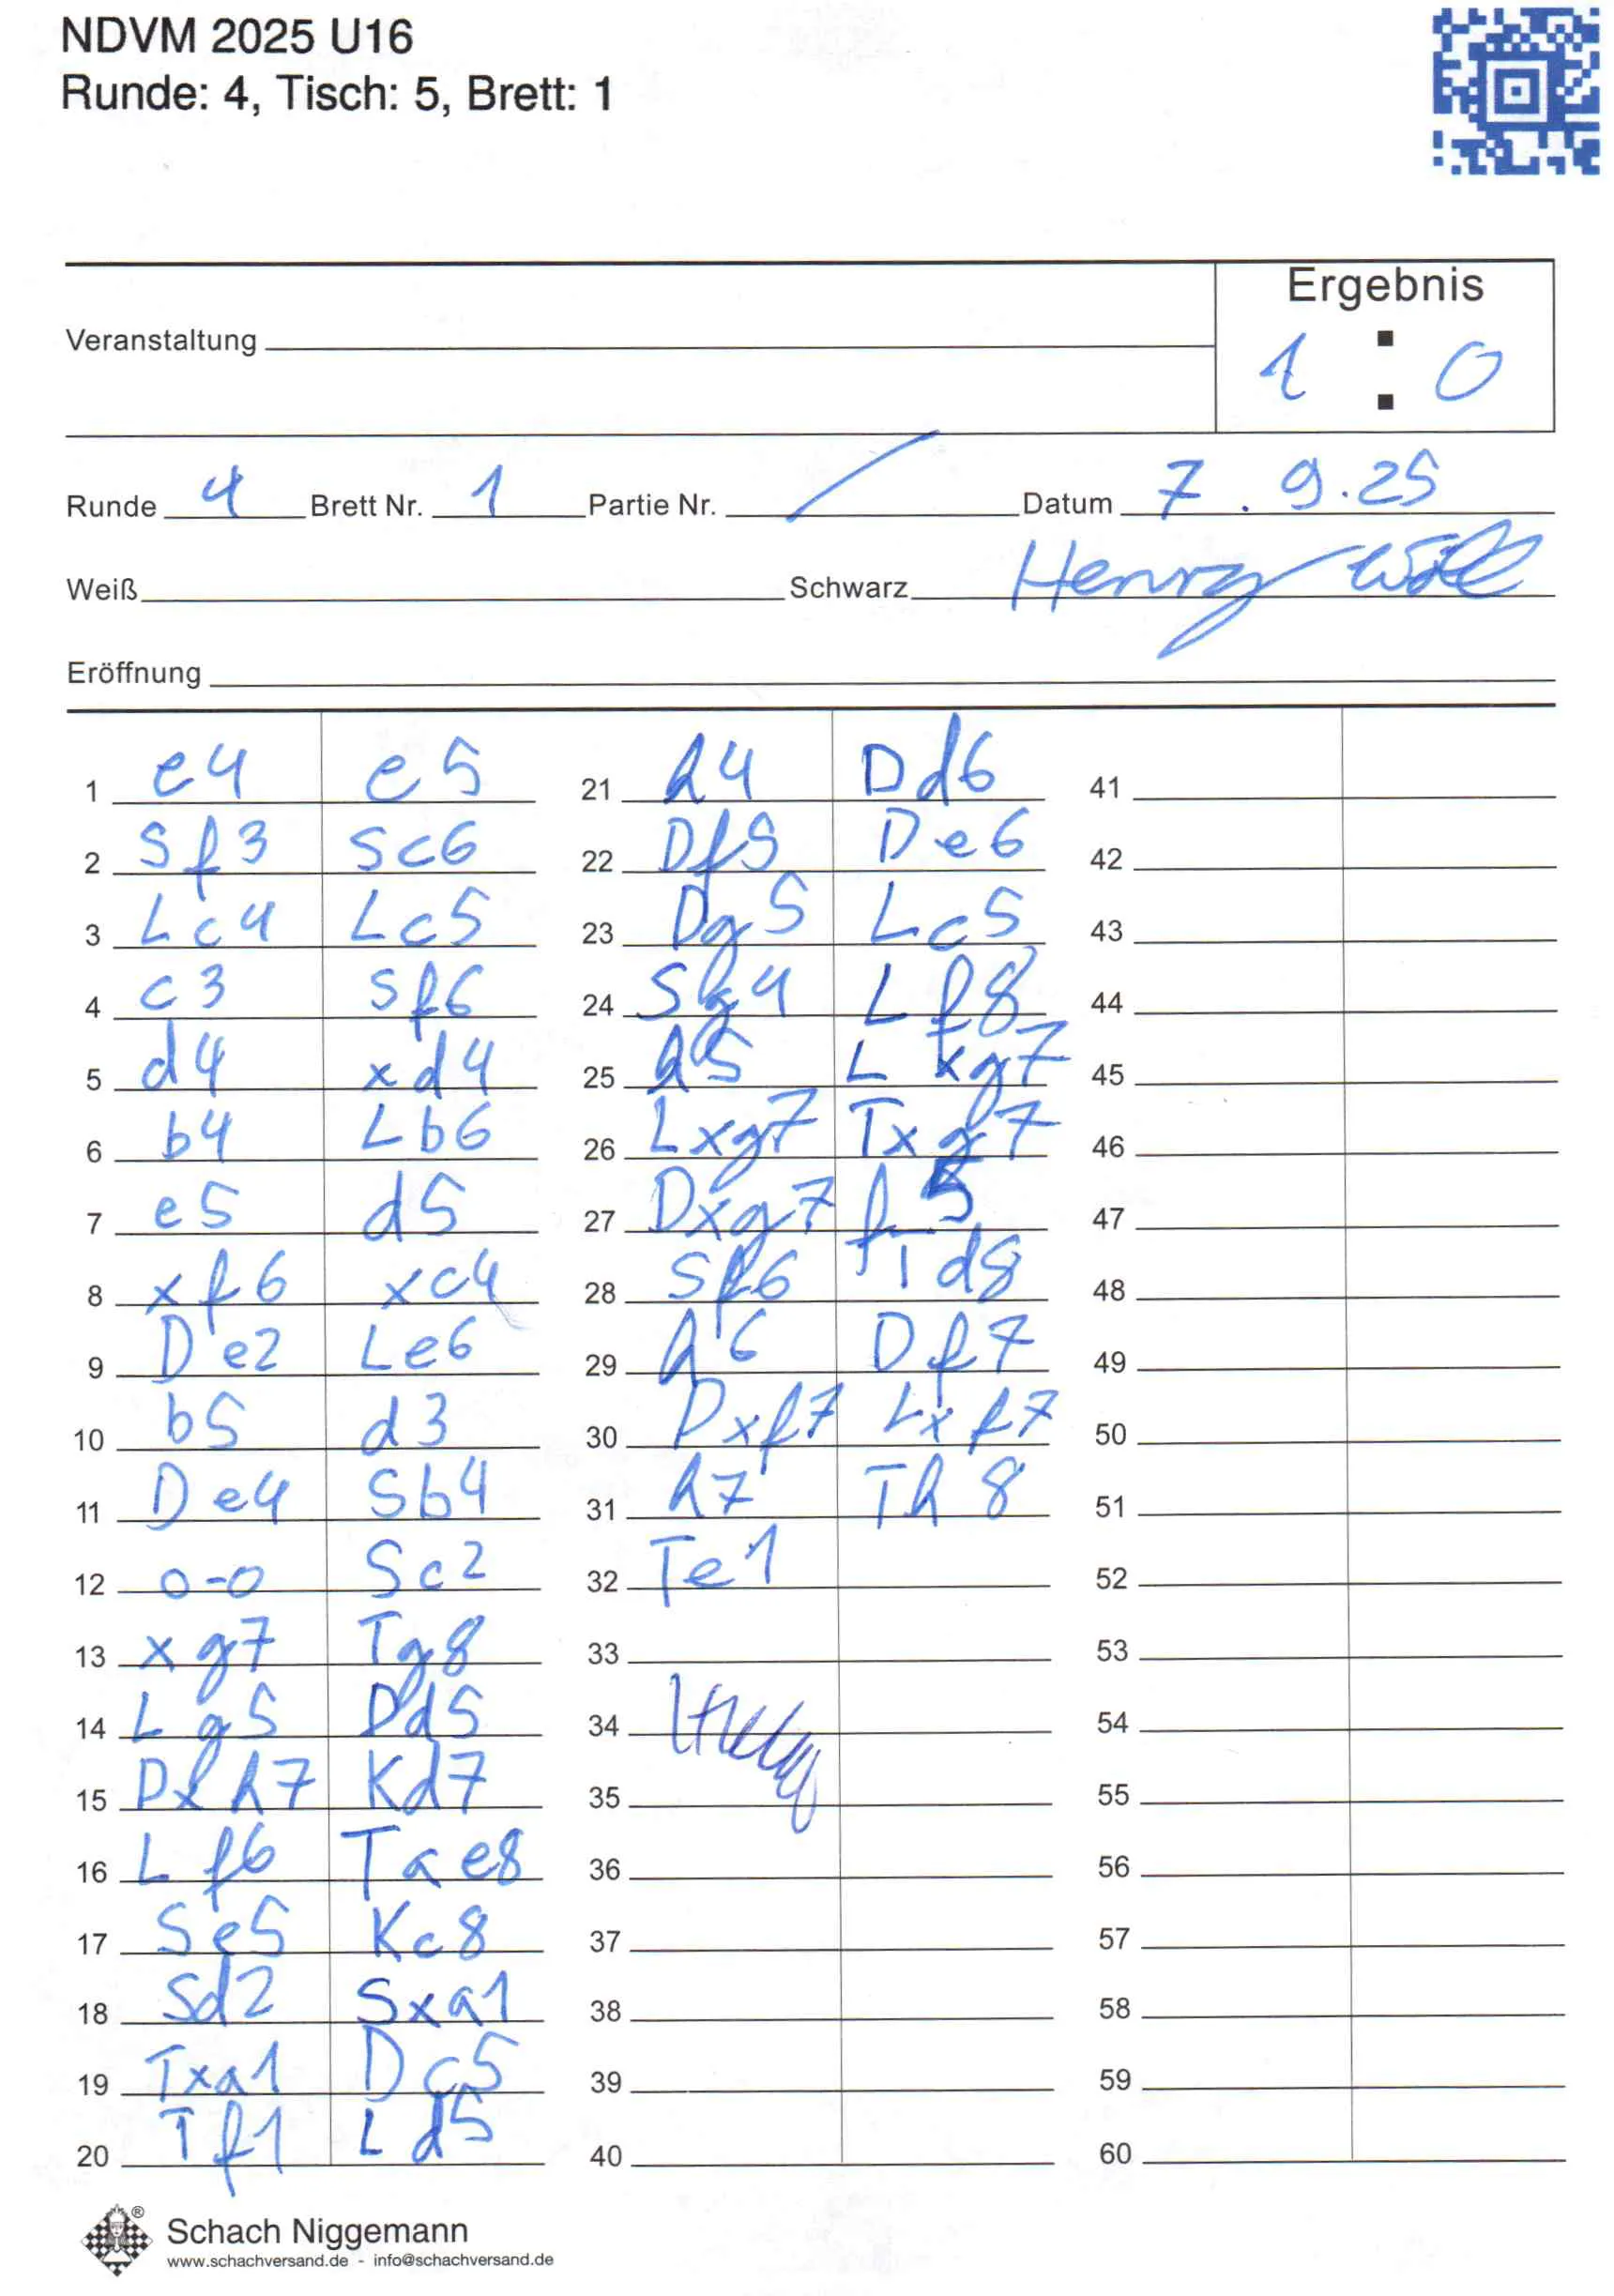 NDVM 2025 U16
Runde: 4, Tisch: 5, Brett: 1
Ergebnis
1 : 0
Veranstaltung
Runde 4 Brett Nr. 1 Partie Nr. / Datum 7.9.25
Weiß Schwarz Henry
Eröffnung
1 e4 e5
2 Sf3 Sc6
3 Lc4 Lc5
4 c3 Sf6
5 d4 xd4
6 b4 Lb6
7 e5 d5
8 xf6 xc4
9 De2 Le6
10 b5 d3
11 De4 Sb4
12 0-0 Sc2
13 xg7 Tg8
14 Lg5 Dd5
15 Dxh7 Kd7
16 Lf6 Tae8
17 Se5 Kc8
18 Sd2 Sxa1
19 Txa1 Dc5
20 Tf1 Ld5
21 h4 Dd6
22 Df5 De6
23 Dg5 Lc5
24 Sg4 Lf8
25 h5 Lxg7
26 Lxg7 Txg7
27 Dxg7 f5
28 Sf6 Td8
29 h6 Df7
30 Dxf7 Lxf7
31 h7 Th8
32 Te1
33
34
35
36
37
38
39
40
41
42
43
44
45
46
47
48
49
50
51
52
53
54
55
56
57
58
59
60
®
Schach Niggemann
www.schachversand.de - info@schachversand.de